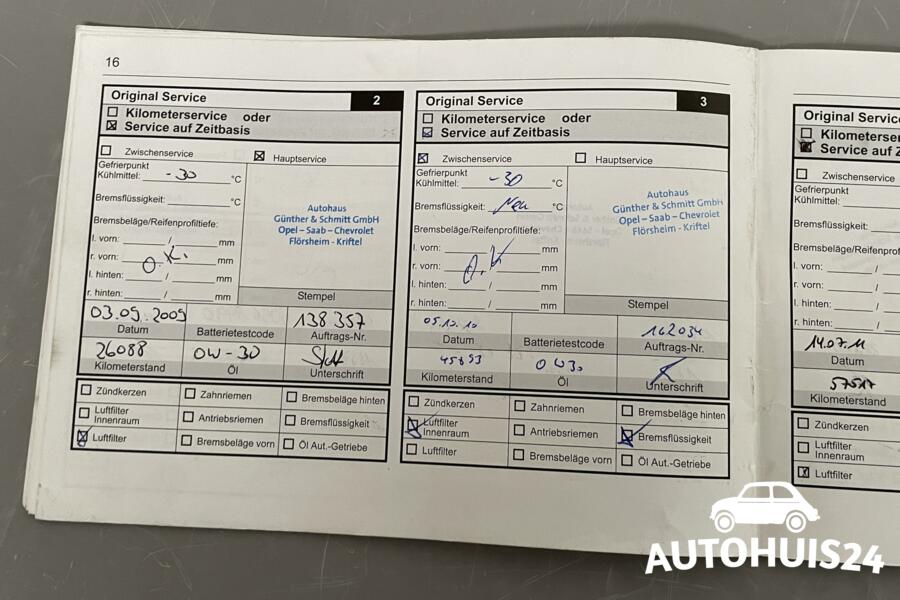 16
Original Service 2
Kilometerservice oder
Service auf Zeitbasis
Zwischenservice Hauptservice
Gefrierpunkt
Kühlmittel: -30 °C
Bremsflüssigkeit: °C
Bremsbeläge/Reifenprofiltiefe:
l. vorn: / mm
r. vorn: / mm
O.K.
l. hinten: / mm
r. hinten: / mm
Autohaus
Günther & Schmitt GmbH
Opel – Saab – Chevrolet
Flörsheim - Kriftel
Stempel
03.09.2009 138 357
Datum Batterietestcode Auftrags-Nr.
26088 0W-30
Kilometerstand Öl Unterschrift
Zündkerzen Zahnriemen Bremsbeläge hinten
Luftfilter Innenraum Antriebsriemen Bremsflüssigkeit
Luftfilter Bremsbeläge vorn Öl Aut.-Getriebe
Original Service 3
Kilometerservice oder
Service auf Zeitbasis
Zwischenservice Hauptservice
Gefrierpunkt
Kühlmittel: -30 °C
Bremsflüssigkeit: Neu °C
Bremsbeläge/Reifenprofiltiefe:
l. vorn: / mm
r. vorn: / mm
O.K
l. hinten: / mm
r. hinten: / mm
Autohaus
Günther & Schmitt GmbH
Opel – Saab – Chevrolet
Flörsheim - Kriftel
Stempel
05.10.10 162034
Datum Batterietestcode Auftrags-Nr.
45893 0W30
Kilometerstand Öl Unterschrift
Zündkerzen Zahnriemen Bremsbeläge hinten
Luftfilter Innenraum Antriebsriemen Bremsflüssigkeit
Luftfilter Bremsbeläge vorn Öl Aut.-Getriebe
Original Servic
Kilometerser
Service auf Z
Zwischenservice
Gefrierpunkt
Kühlmittel:
Bremsflüssigkeit:
Bremsbeläge/Reifenp
l. vorn:
r. vorn:
l. hinten:
r. hinten:
14.07.11
Datum
57517
Kilometerstand
Zündkerzen
Luftfilter
Innenraum
Luftfilter
AUTOHUIS24